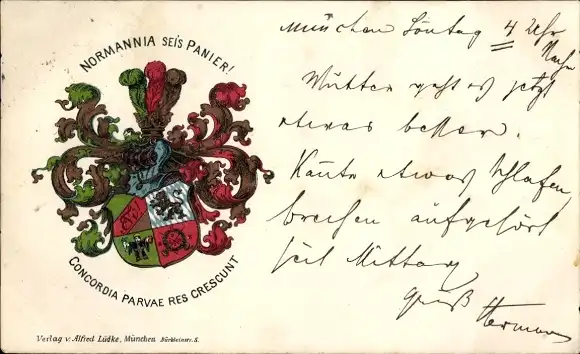 NORMANNIA SEI'S PANIER!
CONCORDIA PARVAE RES CRESCUNT
Verlag v. Alfred Lüdke, München Bürkleinstr. 5.
München Sontag 4 Uhr
Nachm
Mutter geht es jetzt
etwas besser.
Konnte etwas schlafen,
brechen aufgehört
seit Mittag
Gruß Hermann